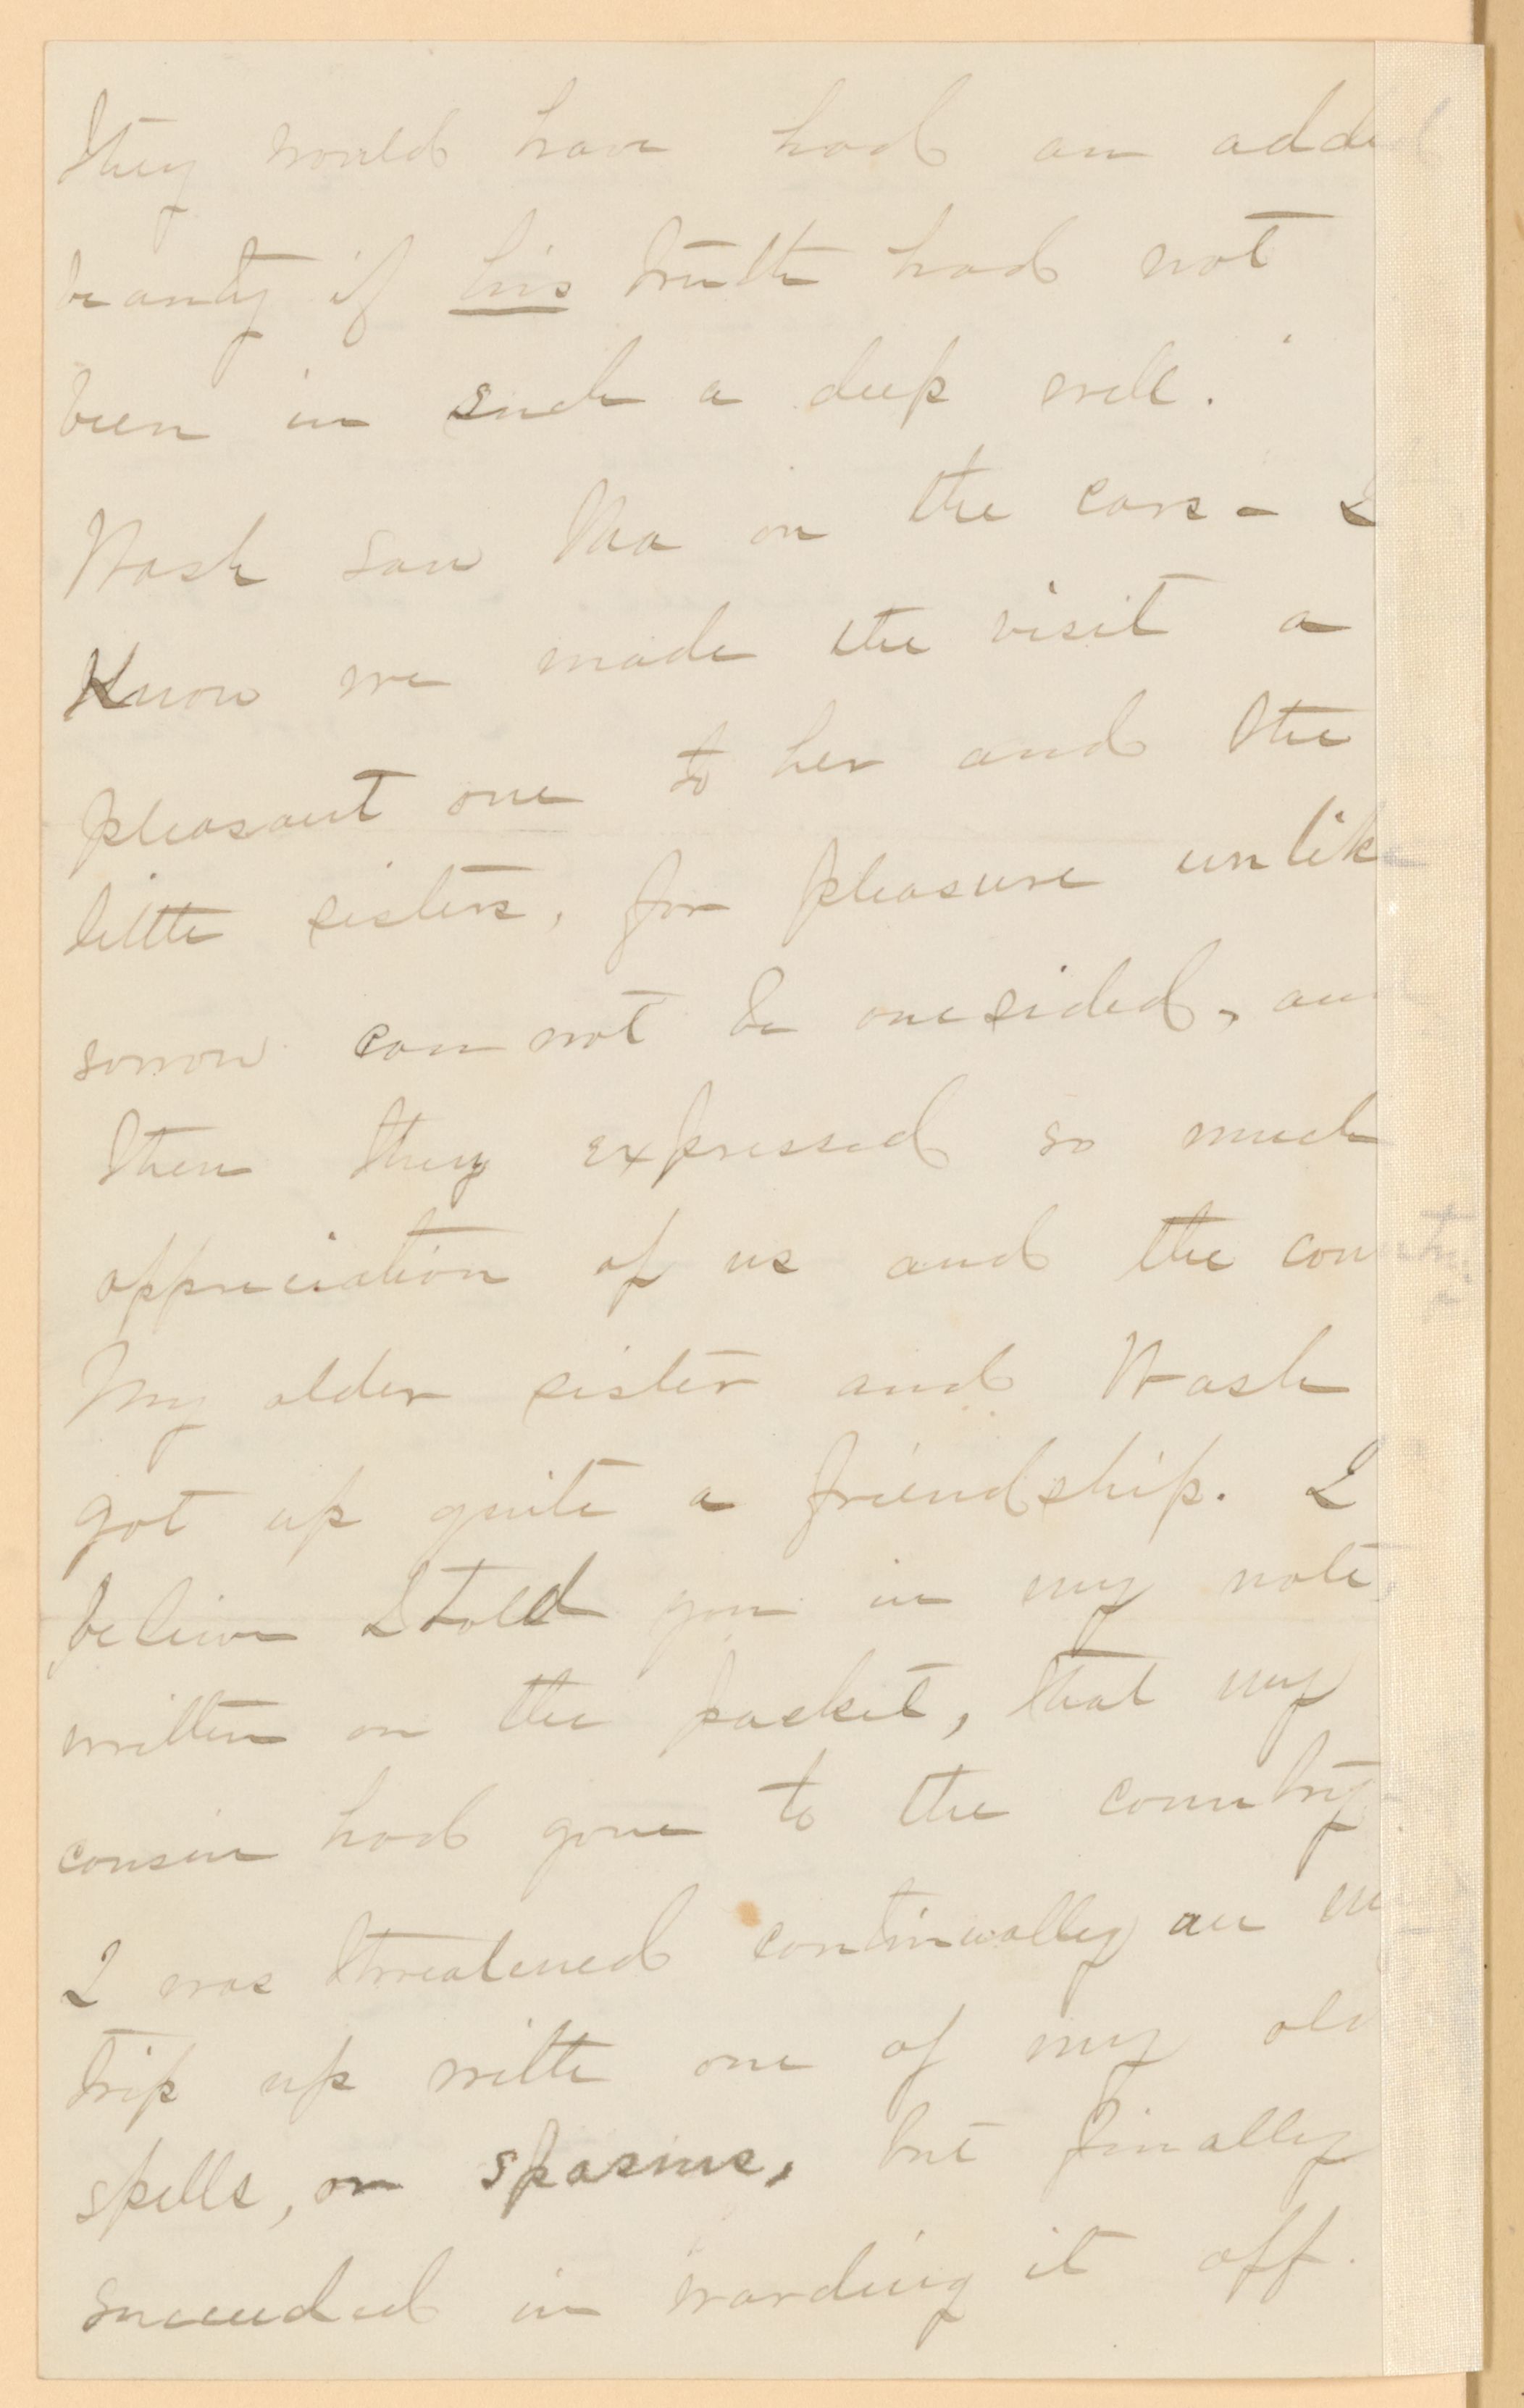 they would have had an added
beauty if his truth had not
been in such a deep well.
Wash saw Ma on the cars - I
Know we made the visit a
pleasant one to her and the
little sisters, for pleasure unlike
sorrow can not be onesided, and
then they expressed so much
appreciation of us and the country.
My older sister and Wash
got up quite a friendship. I
believe I told you in my note,
written on the packet, that my
cousin had gone to the country.
I was threatened continually on my
trip up with one of my old
spells, or spasms, but finally
succeeded in warding it off.